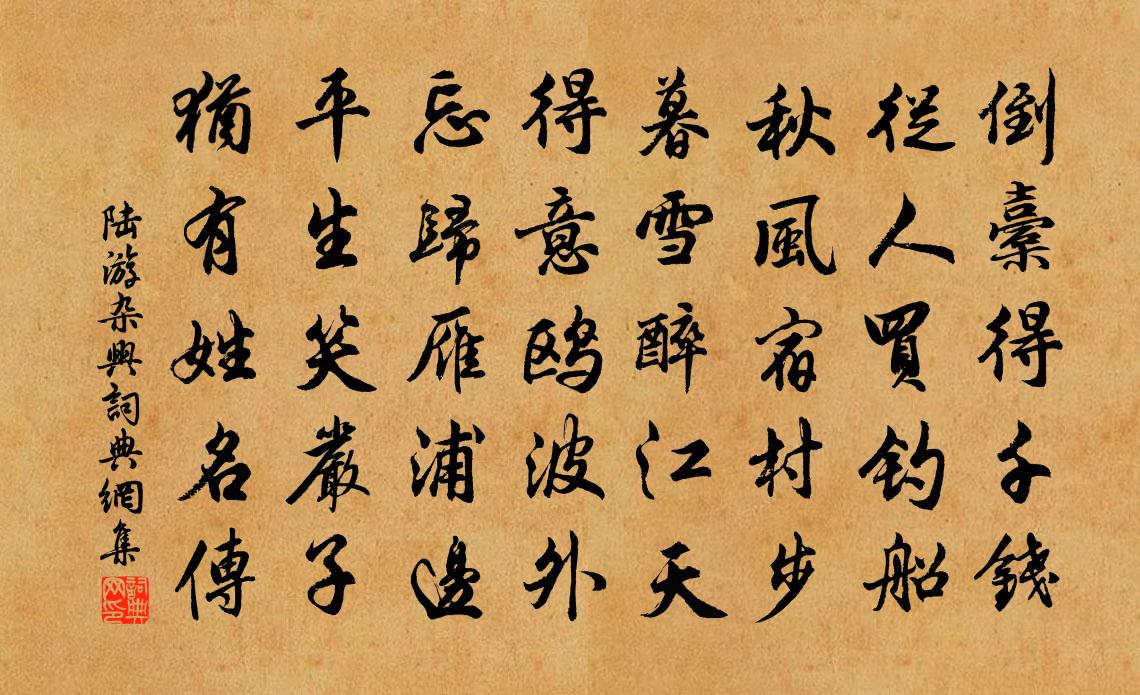 倒橐得千錢
從人買釣船
秋風宿村步
暮雪醉江天
得意鷗波外
忘歸雁浦邊
平生笑嚴子
猶有姓名傳
陆游杂興詞典網集
詞典网印